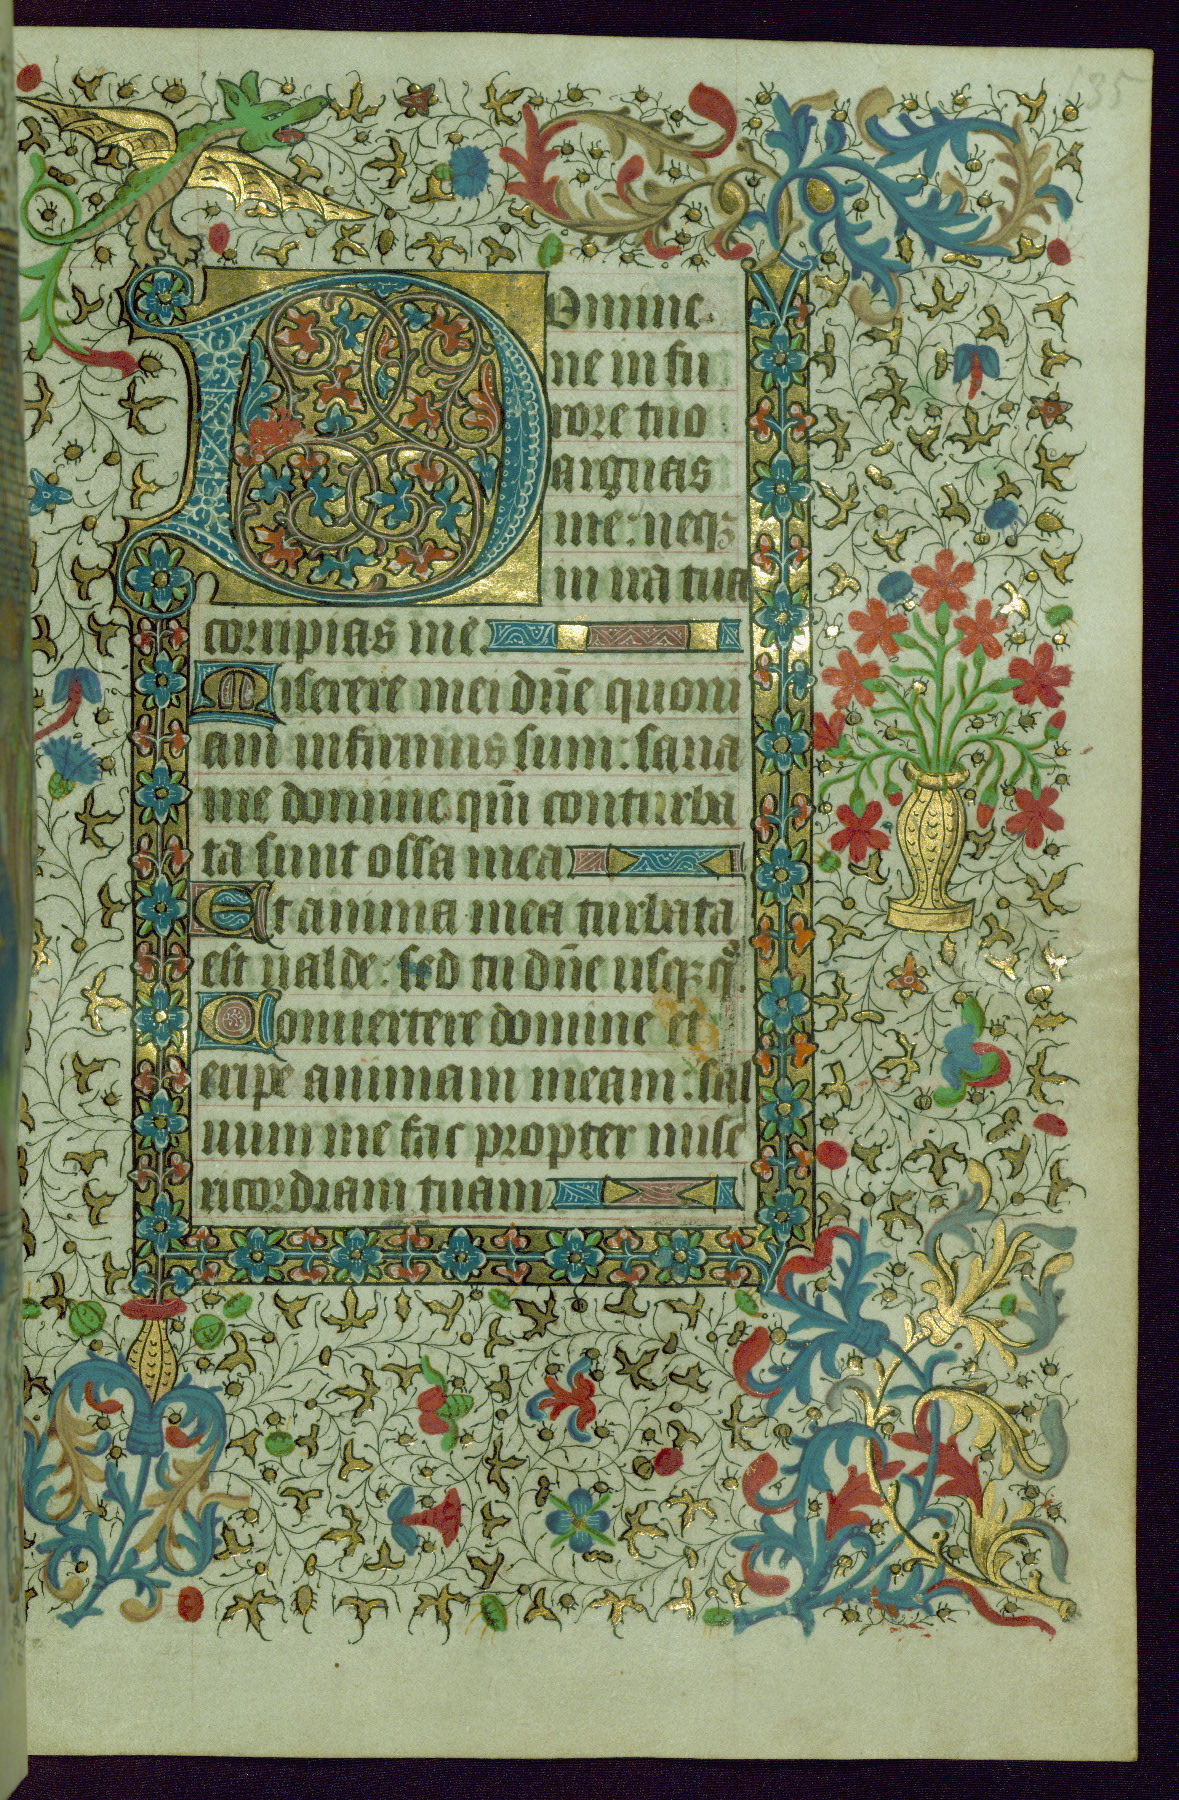 135
Domine
ne in fu
rore tuo
arguas
me: neqꝫ
in ira tua
corripias me
Miserere mei dn̄e quoni
am infirmus sum: sana
me domine qm̄ conturba
ta sunt ossa mea
Et anima mea turbata
est ualde: sed tu dn̄e usqꝫ q̄.
Conuertere domine et
eripe animam meam: sal
uum me fac propter mise
ricordiam tuam